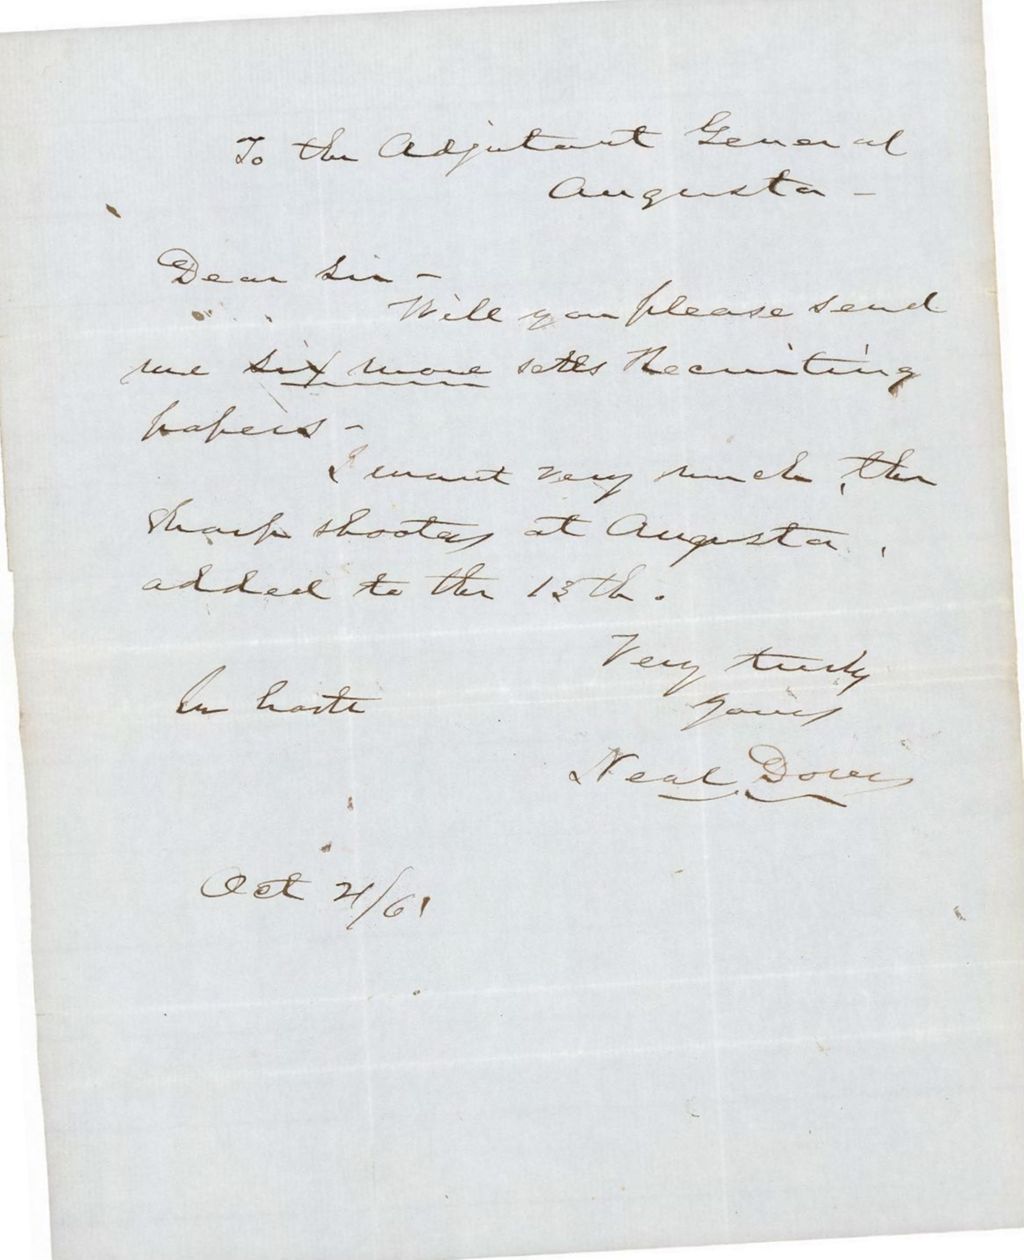 To the Adjutant General
Augusta -
Dear Sir -
Will you please send
me six more setts Recruiting
papers -
I want very much, the
sharp shooters at Augusta,
added to the 13th.
Very truly
yours
In haste
Neal Dow
Oct 21/61